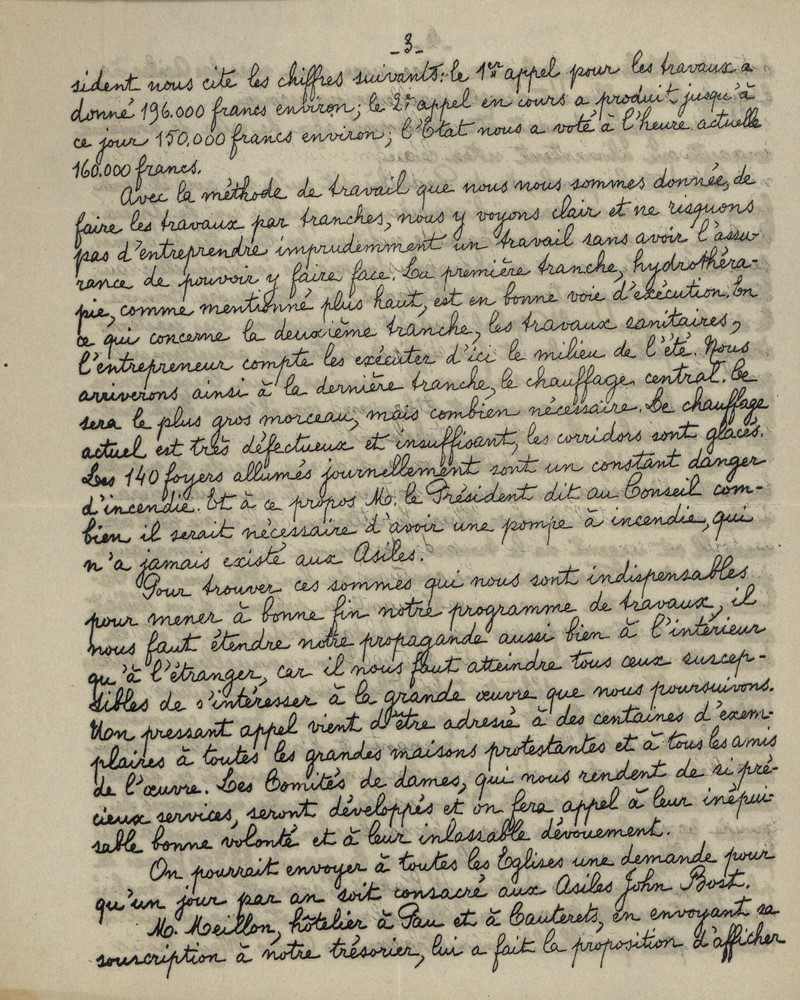 -3-
sident nous cite les chiffres suivants: le 1er appel pour les travaux a
donné 196.000 francs environ; le 2e appel en cours a produit jusqu'à
ce jour 150.000 francs environ; l'Etat nous a voté à l'heure actuelle
160.000 francs.
Avec la méthode de travail que nous nous sommes donnée, de
faire les travaux par tranches, nous y voyons clair et ne risquons
pas d'entreprendre imprudemment un travail sans avoir l'assu-
rance de pouvoir y faire face. La première tranche, hydrothéra-
pie, comme mentionné plus haut, est en bonne voie d'exécution. En
ce qui concerne la deuxième tranche, les travaux sanitaires,
l'entrepreneur compte les exécuter d'ici le milieu de l'été. Nous
arriverons ainsi à la dernière tranche, le chauffage central. Ce
sera le plus gros morceau, mais combien nécessaire. Le chauffage
actuel est très défectueux et insuffisant, les corridors sont glacés.
Les 140 foyers allumés journellement sont un constant danger
d'incendie. Et à ce propos M. le Président dit au Conseil com-
bien il serait nécessaire d'avoir une pompe à incendie, qui
n'a jamais existé aux Asiles.
Pour trouver ces sommes qui nous sont indispensables
pour mener à bonne fin notre programme de travaux, il
nous faut étendre notre propagande aussi bien à l'intérieur
qu'à l'étranger, car il nous faut atteindre tous ceux suscep-
tibles de s'intéresser à la grande œuvre que nous poursuivons.
Un pressant appel vient d'être adressé à des centaines d'exem-
plaires à toutes les grandes maisons protestantes et à tous les amis
de l'œuvre. Les Comités de dames, qui nous rendent de si pré-
cieux services, seront développés et on fera appel à leur inépui-
sable bonne volonté et à leur inlassable dévouement.
On pourrait envoyer à toutes les Eglises une demande pour
qu'un jour par an soit consacré aux Asiles John Bost.
M. Meillon, hôtelier à Pau et à Cauterets, en envoyant sa
souscription à notre trésorier, lui a fait la proposition d'afficher